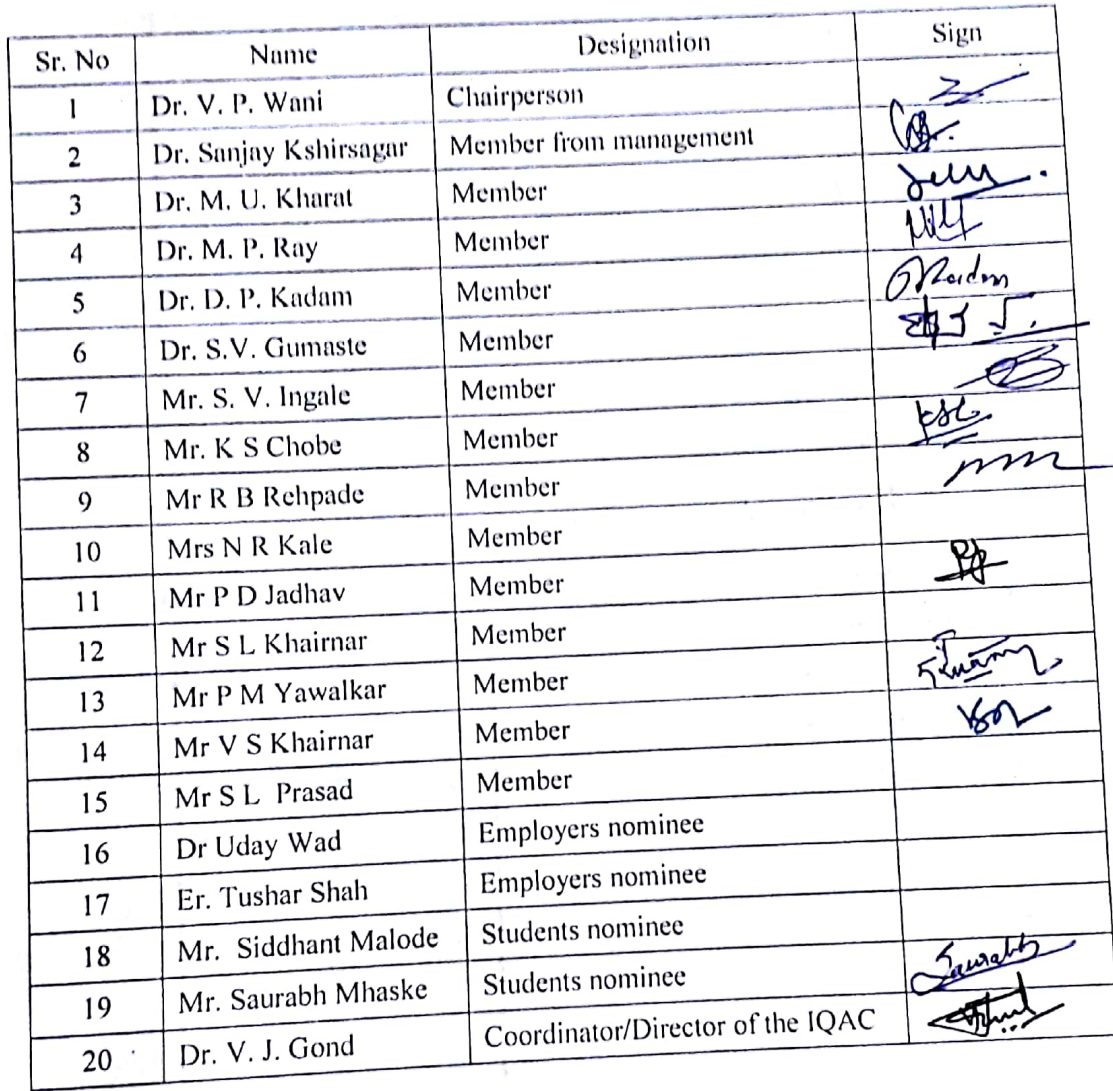 Sr. No Name Designation Sign
1 Dr. V. P. Wani Chairperson
2 Dr. Sanjay Kshirsagar Member from management
3 Dr. M. U. Kharat Member
4 Dr. M. P. Ray Member
5 Dr. D. P. Kadam Member
6 Dr. S.V. Gumaste Member
7 Mr. S. V. Ingale Member
8 Mr. K S Chobe Member
9 Mr R B Rehpade Member
10 Mrs N R Kale Member
11 Mr P D Jadhav Member
12 Mr S L Khairnar Member
13 Mr P M Yawalkar Member
14 Mr V S Khairnar Member
15 Mr S L Prasad Member
16 Dr Uday Wad Employers nominee
17 Er. Tushar Shah Employers nominee
18 Mr. Siddhant Malode Students nominee
19 Mr. Saurabh Mhaske Students nominee Saurabh
20 Dr. V. J. Gond Coordinator/Director of the IQAC